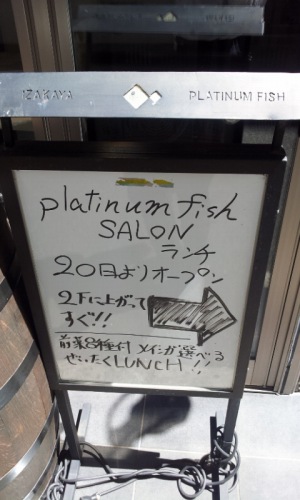 IZAKAYA PLATINUM FISH
platinum fish
SALON
ランチ
20日よりオープン
2Fに上がって
すぐ!!
前菜8種付 メインが選べる
ぜいたくLUNCH!!